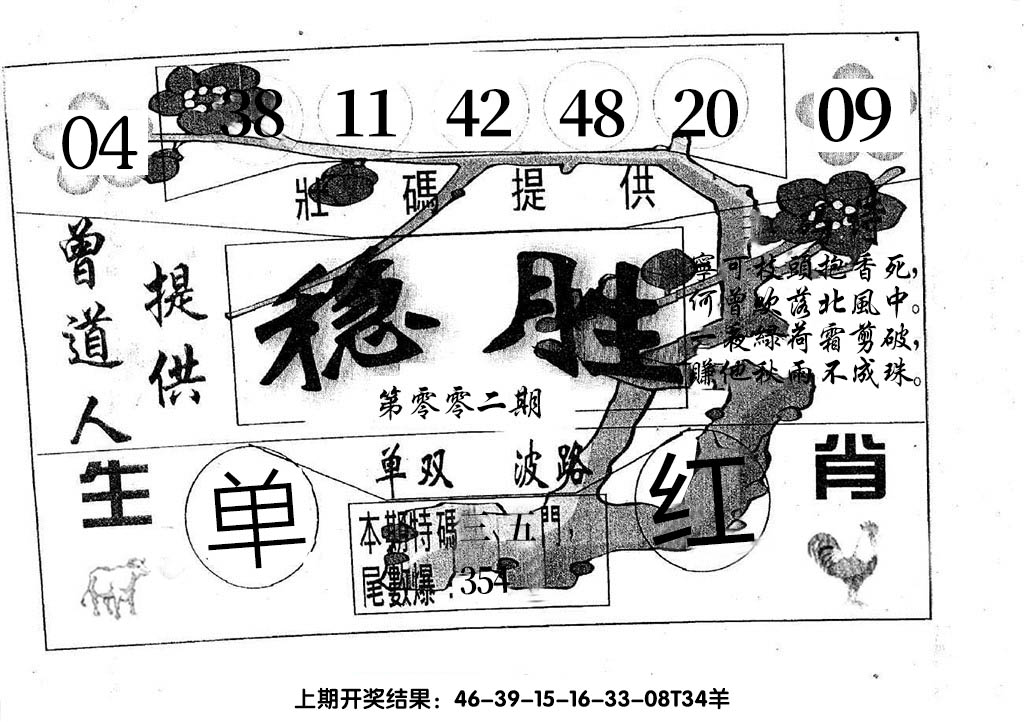 04 38 11 42 48 20 09
壯碼提供
曾道人
提供
稳胜
第零零二期
寧可枝頭抱香死，
何曾吹落北風中。
一夜緑荷霜剪破，
賺他秋雨不成珠。
单双 波路
生 肖
单 红
本期特碼三、五門，
尾數爆：354
上期开奖结果：46-39-15-16-33-08T34羊